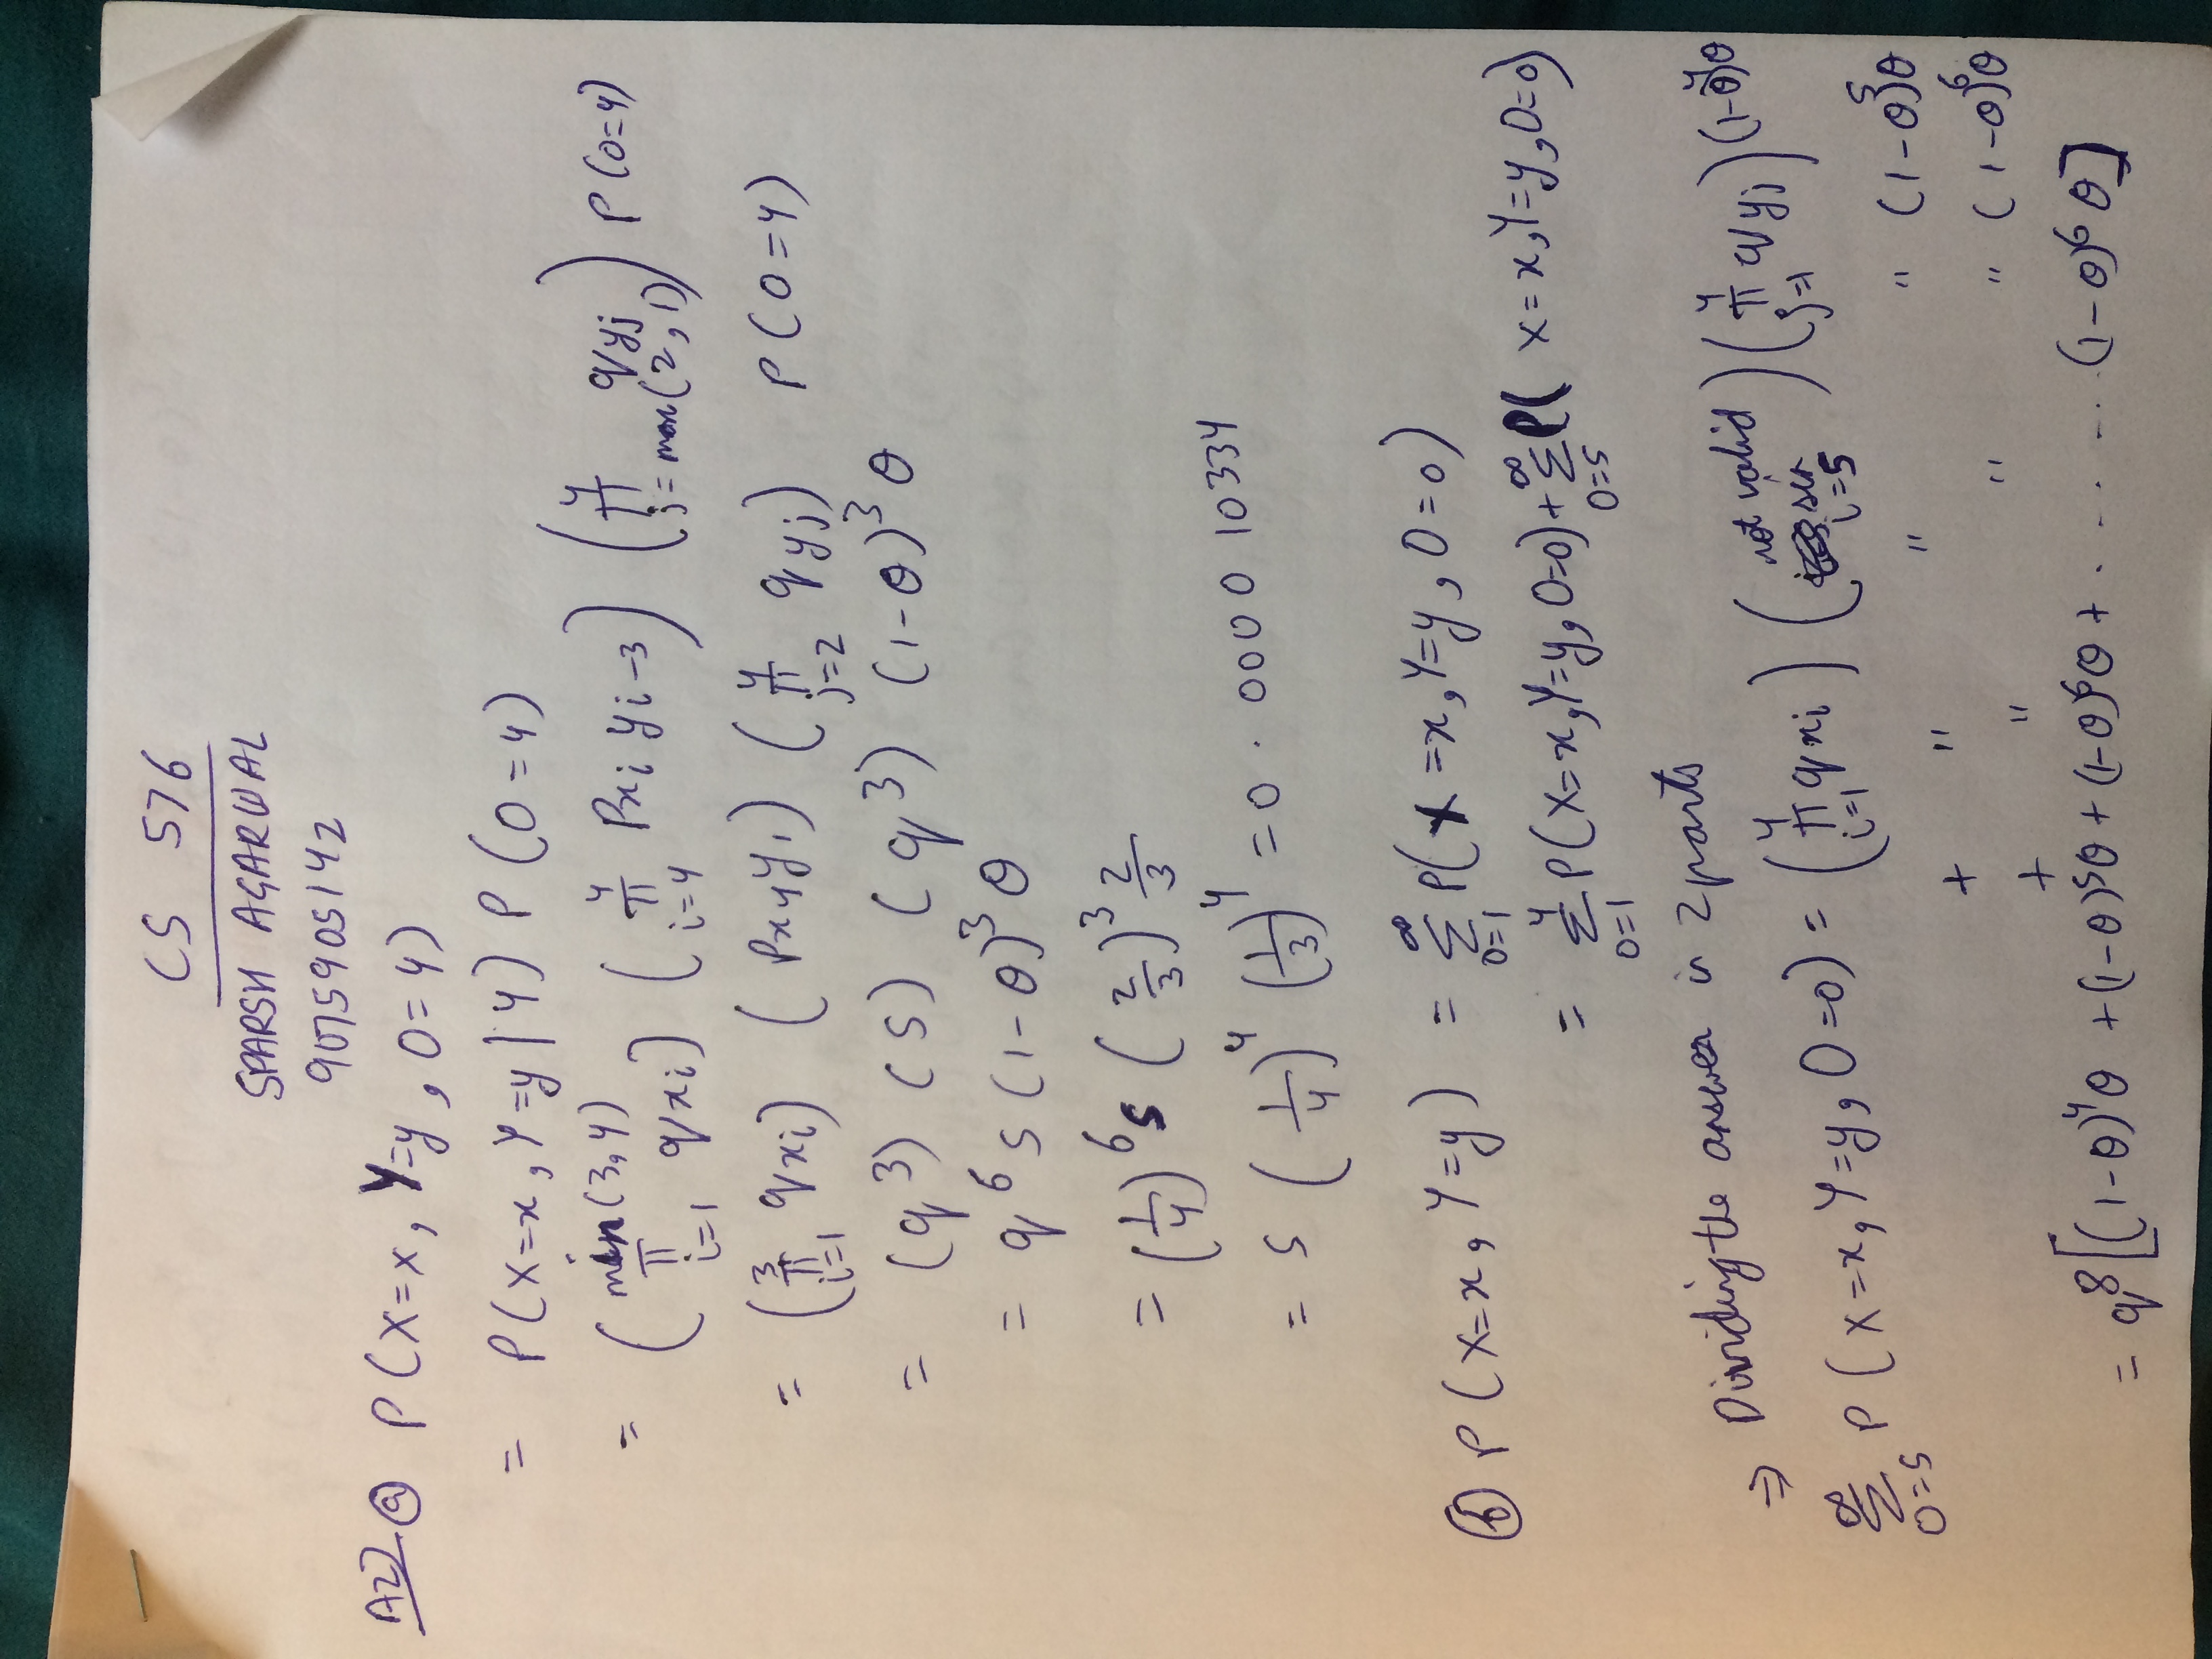 CS 576
SPARSH AGARWAL
9075905142
A2) (a) P(X=x, Y=y, O=4)
= P(X=x, Y=y | 4) P(O=4)
= ( min(3,4) π i=1 q x_i ) ( 4 π i=4 P x_i y_i-3 ) ( 4 π j=max(2,1) q y_j ) P(O=4)
= ( 3 π i=1 q x_i ) ( P x_4 y_1 ) ( 4 π j=2 q y_j ) P(O=4)
= (q^3) (s) (q^3) (1-θ)^3 θ
= q^6 s (1-θ)^3 θ
= (1/4)^6 s (2/3)^3 2/3
= s (1/4)^4 (1/3)^4 = 0.000010334
(b) P(X=x, Y=y) = ∞ Σ o=1 P(X=x, Y=y, O=o)
= 4 Σ o=1 P(X=x, Y=y, O=o) + ∞ Σ o=5 P( X=x, Y=y, O=o)
⇒ Dividing the answer in 2 parts
∞ Σ o=5 P(X=x, Y=y, O=o) = ( 4 π i=1 q x_i ) ( not valid sin i=5 ) ( 4 π j=1 q y_j ) (1-θ)^4 θ
+ " " " (1-θ)^5 θ
+ " " " (1-θ)^6 θ
= q^8 [(1-θ)^4 θ + (1-θ)^5 θ + (1-θ)^6 θ + ...... (1-θ)^6 θ]